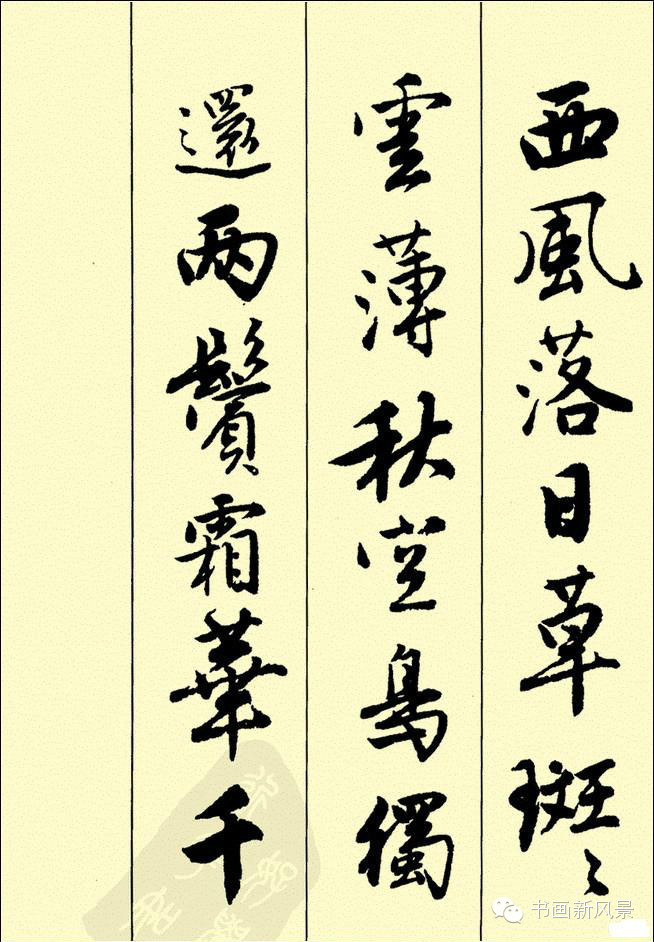 西風落日草斑〻
雲薄秋空鳥獨
還两鬢霜華千
书画新风景